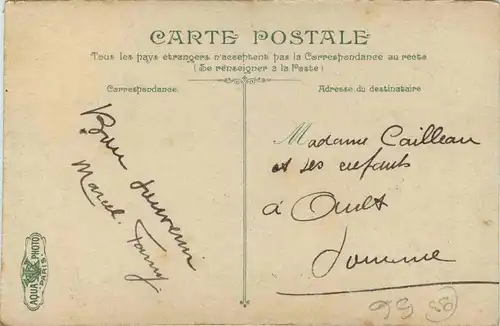 CARTE POSTALE
Tous les pays étrangers n'acceptent pas la Correspondance au recto
(Se renseigner à la Poste)
Correspondance
Adresse du destinataire
Bon souvenir
Marcel. Fanny
Madame Cailleau
et ses enfants
à
Somme
AQUA PHOTO
PARIS